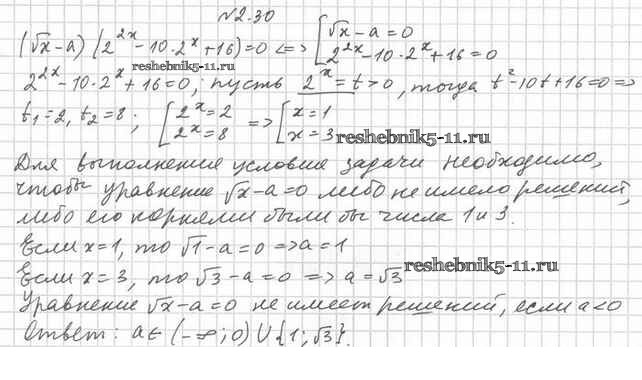 №2.30
(√x-a)(2^{2x}-10·2^x+16)=0 <=> [√x-a=0
2^{2x}-10·2^x+16=0
reshebnik5-11.ru
2^{2x}-10·2^x+16=0; пусть 2^x=t>0, тогда t²-10t+16=0=>
t₁=2, t₂=8; [2^x=2 => [x=1
2^x=8 x=3
reshebnik5-11.ru
Для выполнение условие задачи необходимо,
чтобы уравнение √x-a=0 либо не имело решений,
либо его корнями были бы числа 1 и 3.
Если x=1, то √1-a=0=>a=1
reshebnik5-11.ru
Если x=3, то √3-a=0 => a=√3
Уравнение √x-a=0 не имеет решений, если a<0
Ответ: a∈(-∞;0)∪{1;√3}.